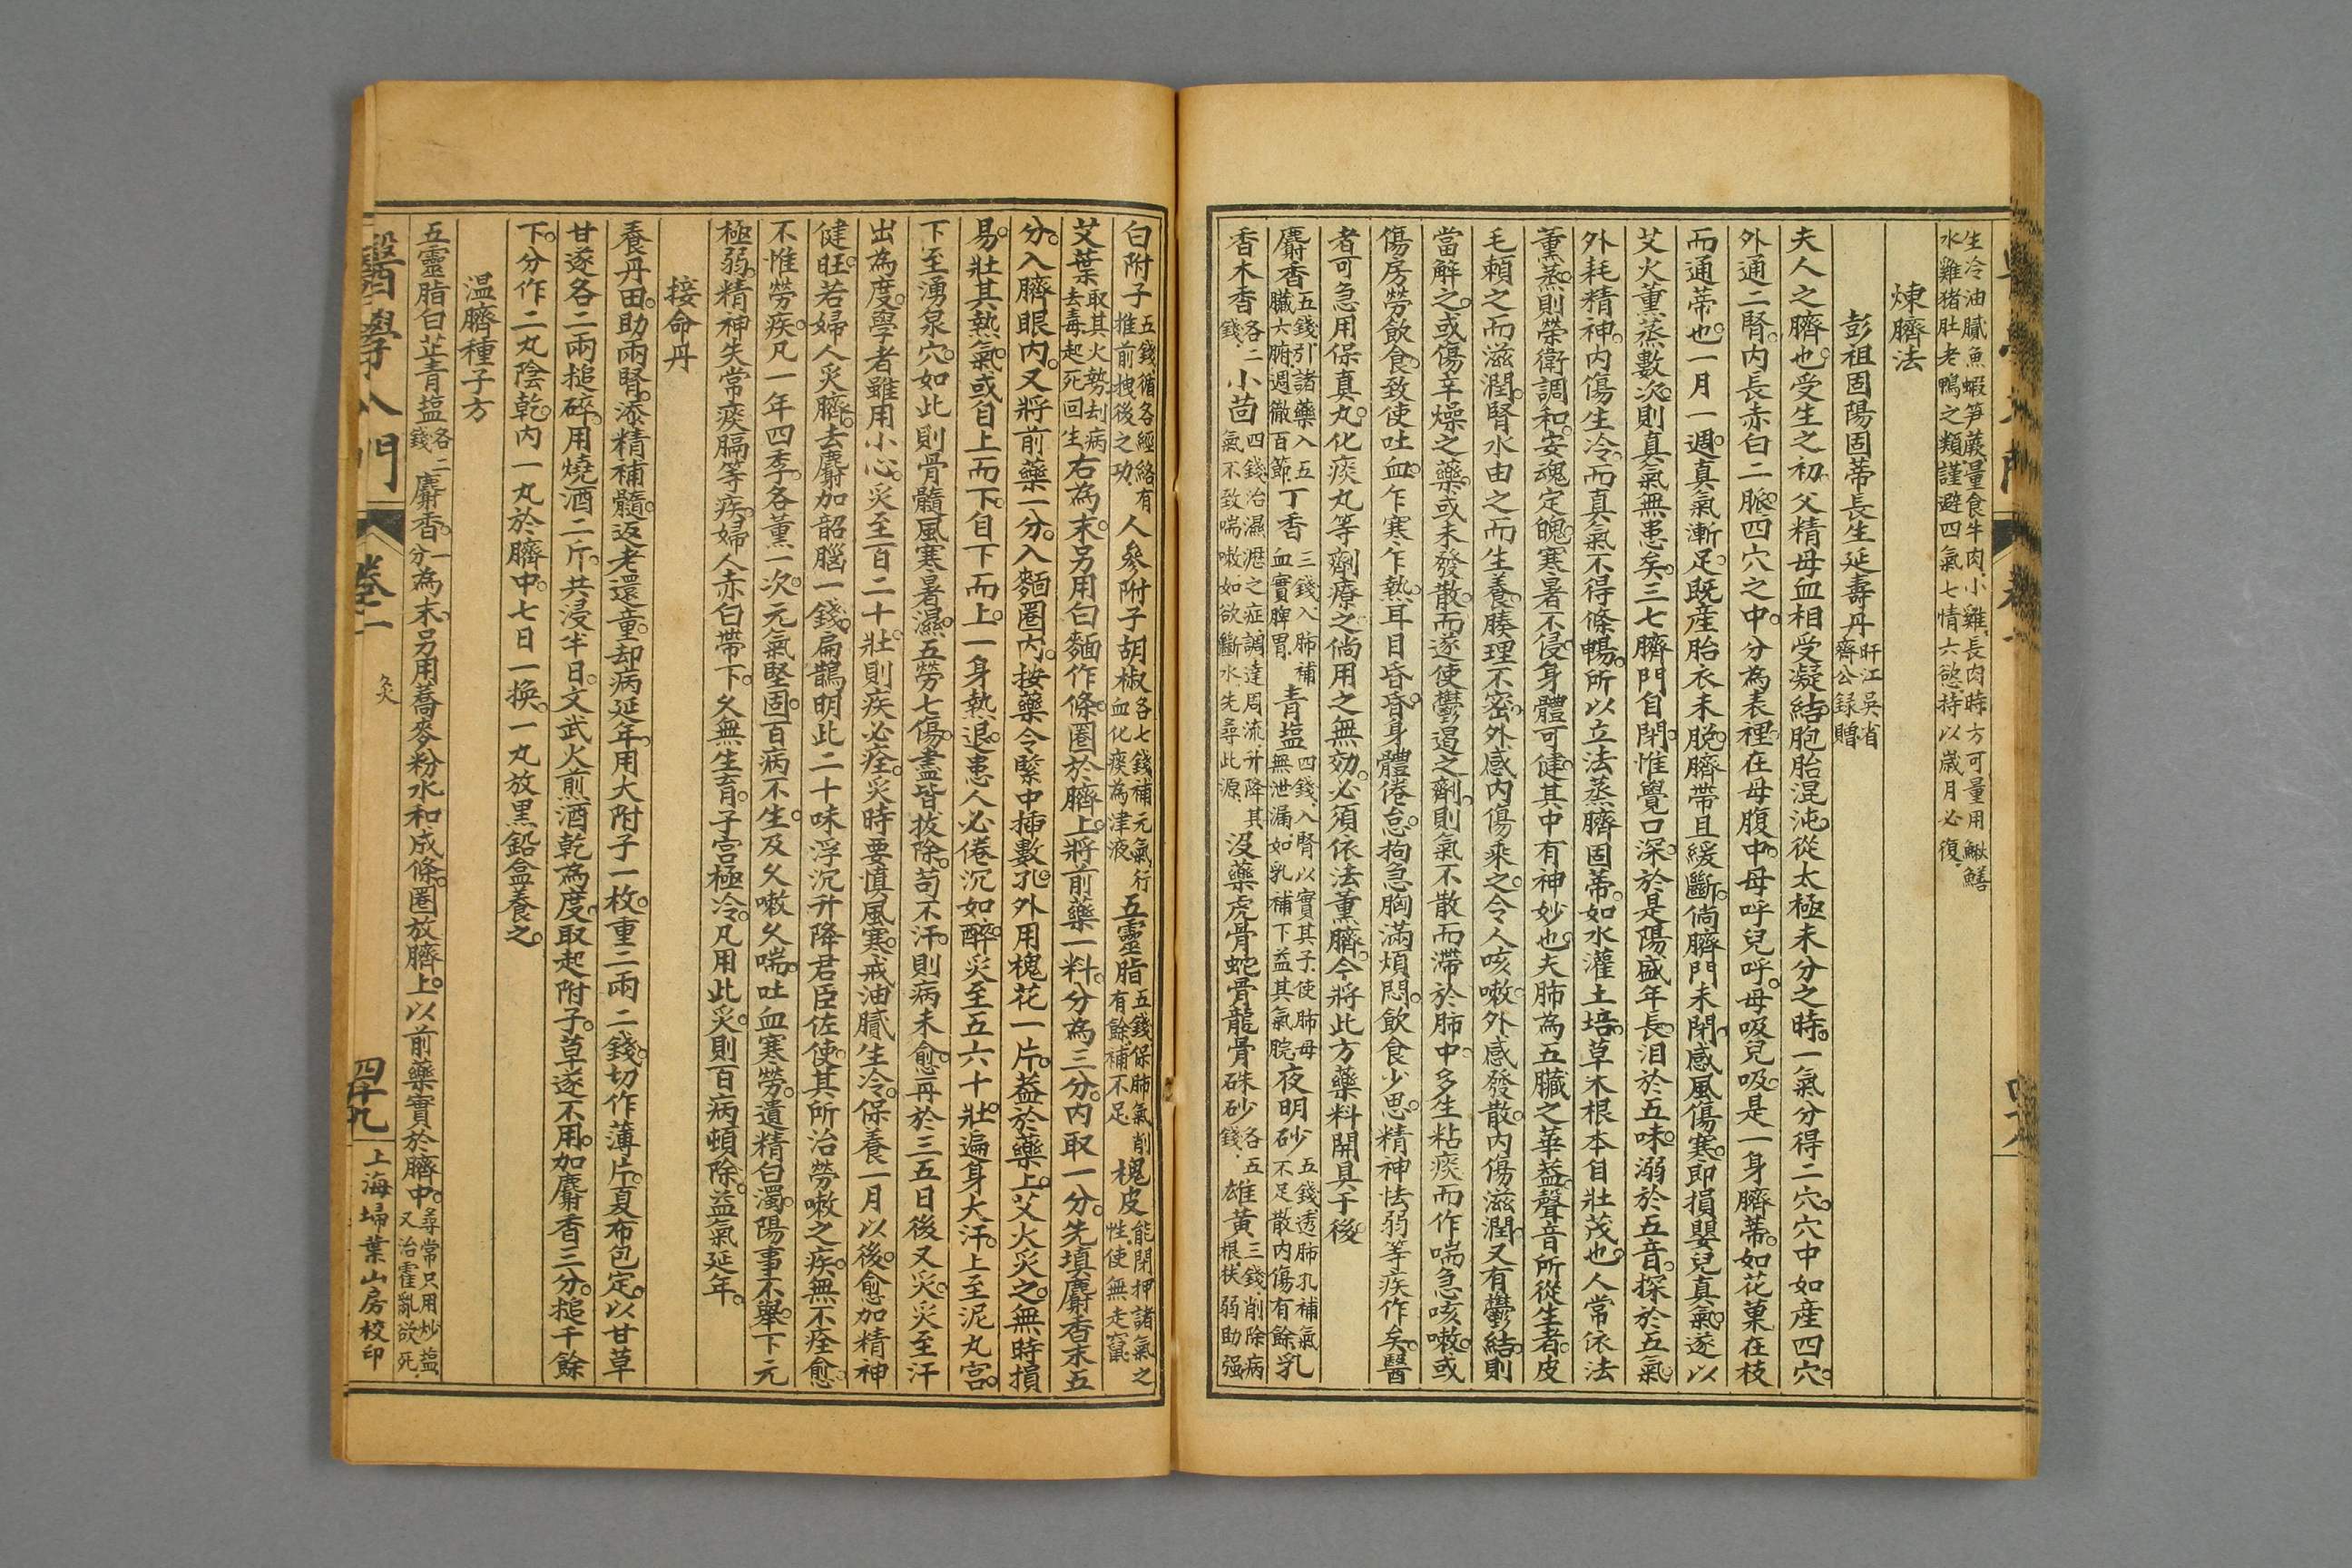 生冷油膩魚蝦笋蕨量食牛肉小雞長肉時方可量用鰍鱔
水雞猪肚老鴨之類謹避四氣七情六慾持以歲月必復
煉臍法
彭祖固陽固蒂長生延壽丹旴江吳省齊公録贈
夫人之臍也受生之初父精母血相受凝結胞胎混沌從太極未分之時一氣分得二穴穴中如產四穴
外通二腎內長赤白二脈四穴之中分為表裡在母腹中母呼兒呼母吸兒吸是一身臍蒂如花菓在枝
而通蒂也一月一週真氣漸足既產胎衣未脫臍帶且緩斷倘臍門未閉感風傷寒即損嬰兒真氣遂以
艾火薰蒸數次則真氣無患矣三七臍門自閉惟覺口深於是陽盛年長泪於五味溺於五音探於五氣
外耗精神內傷生冷而真氣不得條暢所以立法蒸臍固蒂如水灌土培草木根本自壯茂也人常依法
薰蒸則榮衛調和安魂定魄寒暑不侵身體可健其中有神妙也夫肺為五臟之華蓋聲音所從生者皮
毛賴之而滋潤腎水由之而生養腠理不密外感內傷乘之令人咳嗽外感發散內傷滋潤又有鬱結則
當解之或傷辛燥之藥或未發散而遂使鬱遏之劑則氣不散而滯於肺中多生粘痰而作喘急咳嗽或
傷房勞飲食致使吐血乍寒乍熱耳目昏昏身體倦怠拘急胸滿煩悶飲食少思精神怯弱等疾作矣醫
者可急用保真丸化痰丸等劑療之倘用之無効必須依法薰臍今將此方藥料開具于後
麝香五錢引諸藥入五臟六腑週徹百節丁香三錢入肺補血實脾胃青塩四錢入腎以實其子使肺母無泄漏如乳補下益其氣脘夜明砂五錢透肺孔補氣不足散內傷有餘乳
香木香各二錢小茴四錢治濕瀝之症調達周流升降其氣不致喘嗽如欲斷水先尋此源沒藥虎骨蛇骨龍骨硃砂各五錢雄黃三錢削除病根扶弱助强
白附子五錢循各經絡有推前拽後之功人參附子胡椒各七錢補元氣行血化痰為津液五靈脂五錢保肺氣削有餘補不足槐皮能閉押諸氣之性使無走竄
艾葉取其火勢刦病去毒起死回生右為末另用白麵作條圈於臍上將前藥一料分為三分內取一分先填麝香末五
分入臍眼內又將前藥一分入麵圈內按藥令緊中揷數孔外用槐花一片葢於藥上艾火灸之無時損
易壯其熱氣或自上而下自下而上一身熱退患人必倦沉如醉灸至五六十壯遍身大汗上至泥丸宮
下至湧泉穴如此則骨髓風寒暑濕五勞七傷盡皆拔除苟不汗則病未愈再於三五日後又灸灸至汗
出為度學者雖用小心灸至百二十壯則疾必痊灸時要慎風寒戒油膩生冷保養一月以後愈加精神
健旺若婦人灸臍去麝加韶腦一錢扁鵲明此二十味浮沉升降君臣佐使其所治勞嗽之疾無不痊愈
不惟勞疾凡一年四季各薰一次元氣堅固百病不生及久嗽久喘吐血寒勞遺精白濁陽事不舉下元
極弱精神失常痰膈等疾婦人赤白帶下久無生育子宮極冷凡用此灸則百病頓除益氣延年
接命丹
養丹田助兩腎添精補髓返老還童却病延年用大附子一枚重二兩二錢切作薄片夏布包定以甘草
甘遂各二兩搥碎用燒酒二斤共浸半日文武火煎酒乾為度取起附子草遂不用加麝香三分搥千餘
下分作二丸陰乾內一丸於臍中七日一換一丸放黑鉛盒養之
温臍種子方
五靈脂白芷青塩各二錢麝香一分為末另用蕎麥粉水和成條圈放臍上以前藥實於臍中尋常只用炒塩又治霍亂欲死
醫學入門　卷一　灸　四十九　上海埽葉山房校印